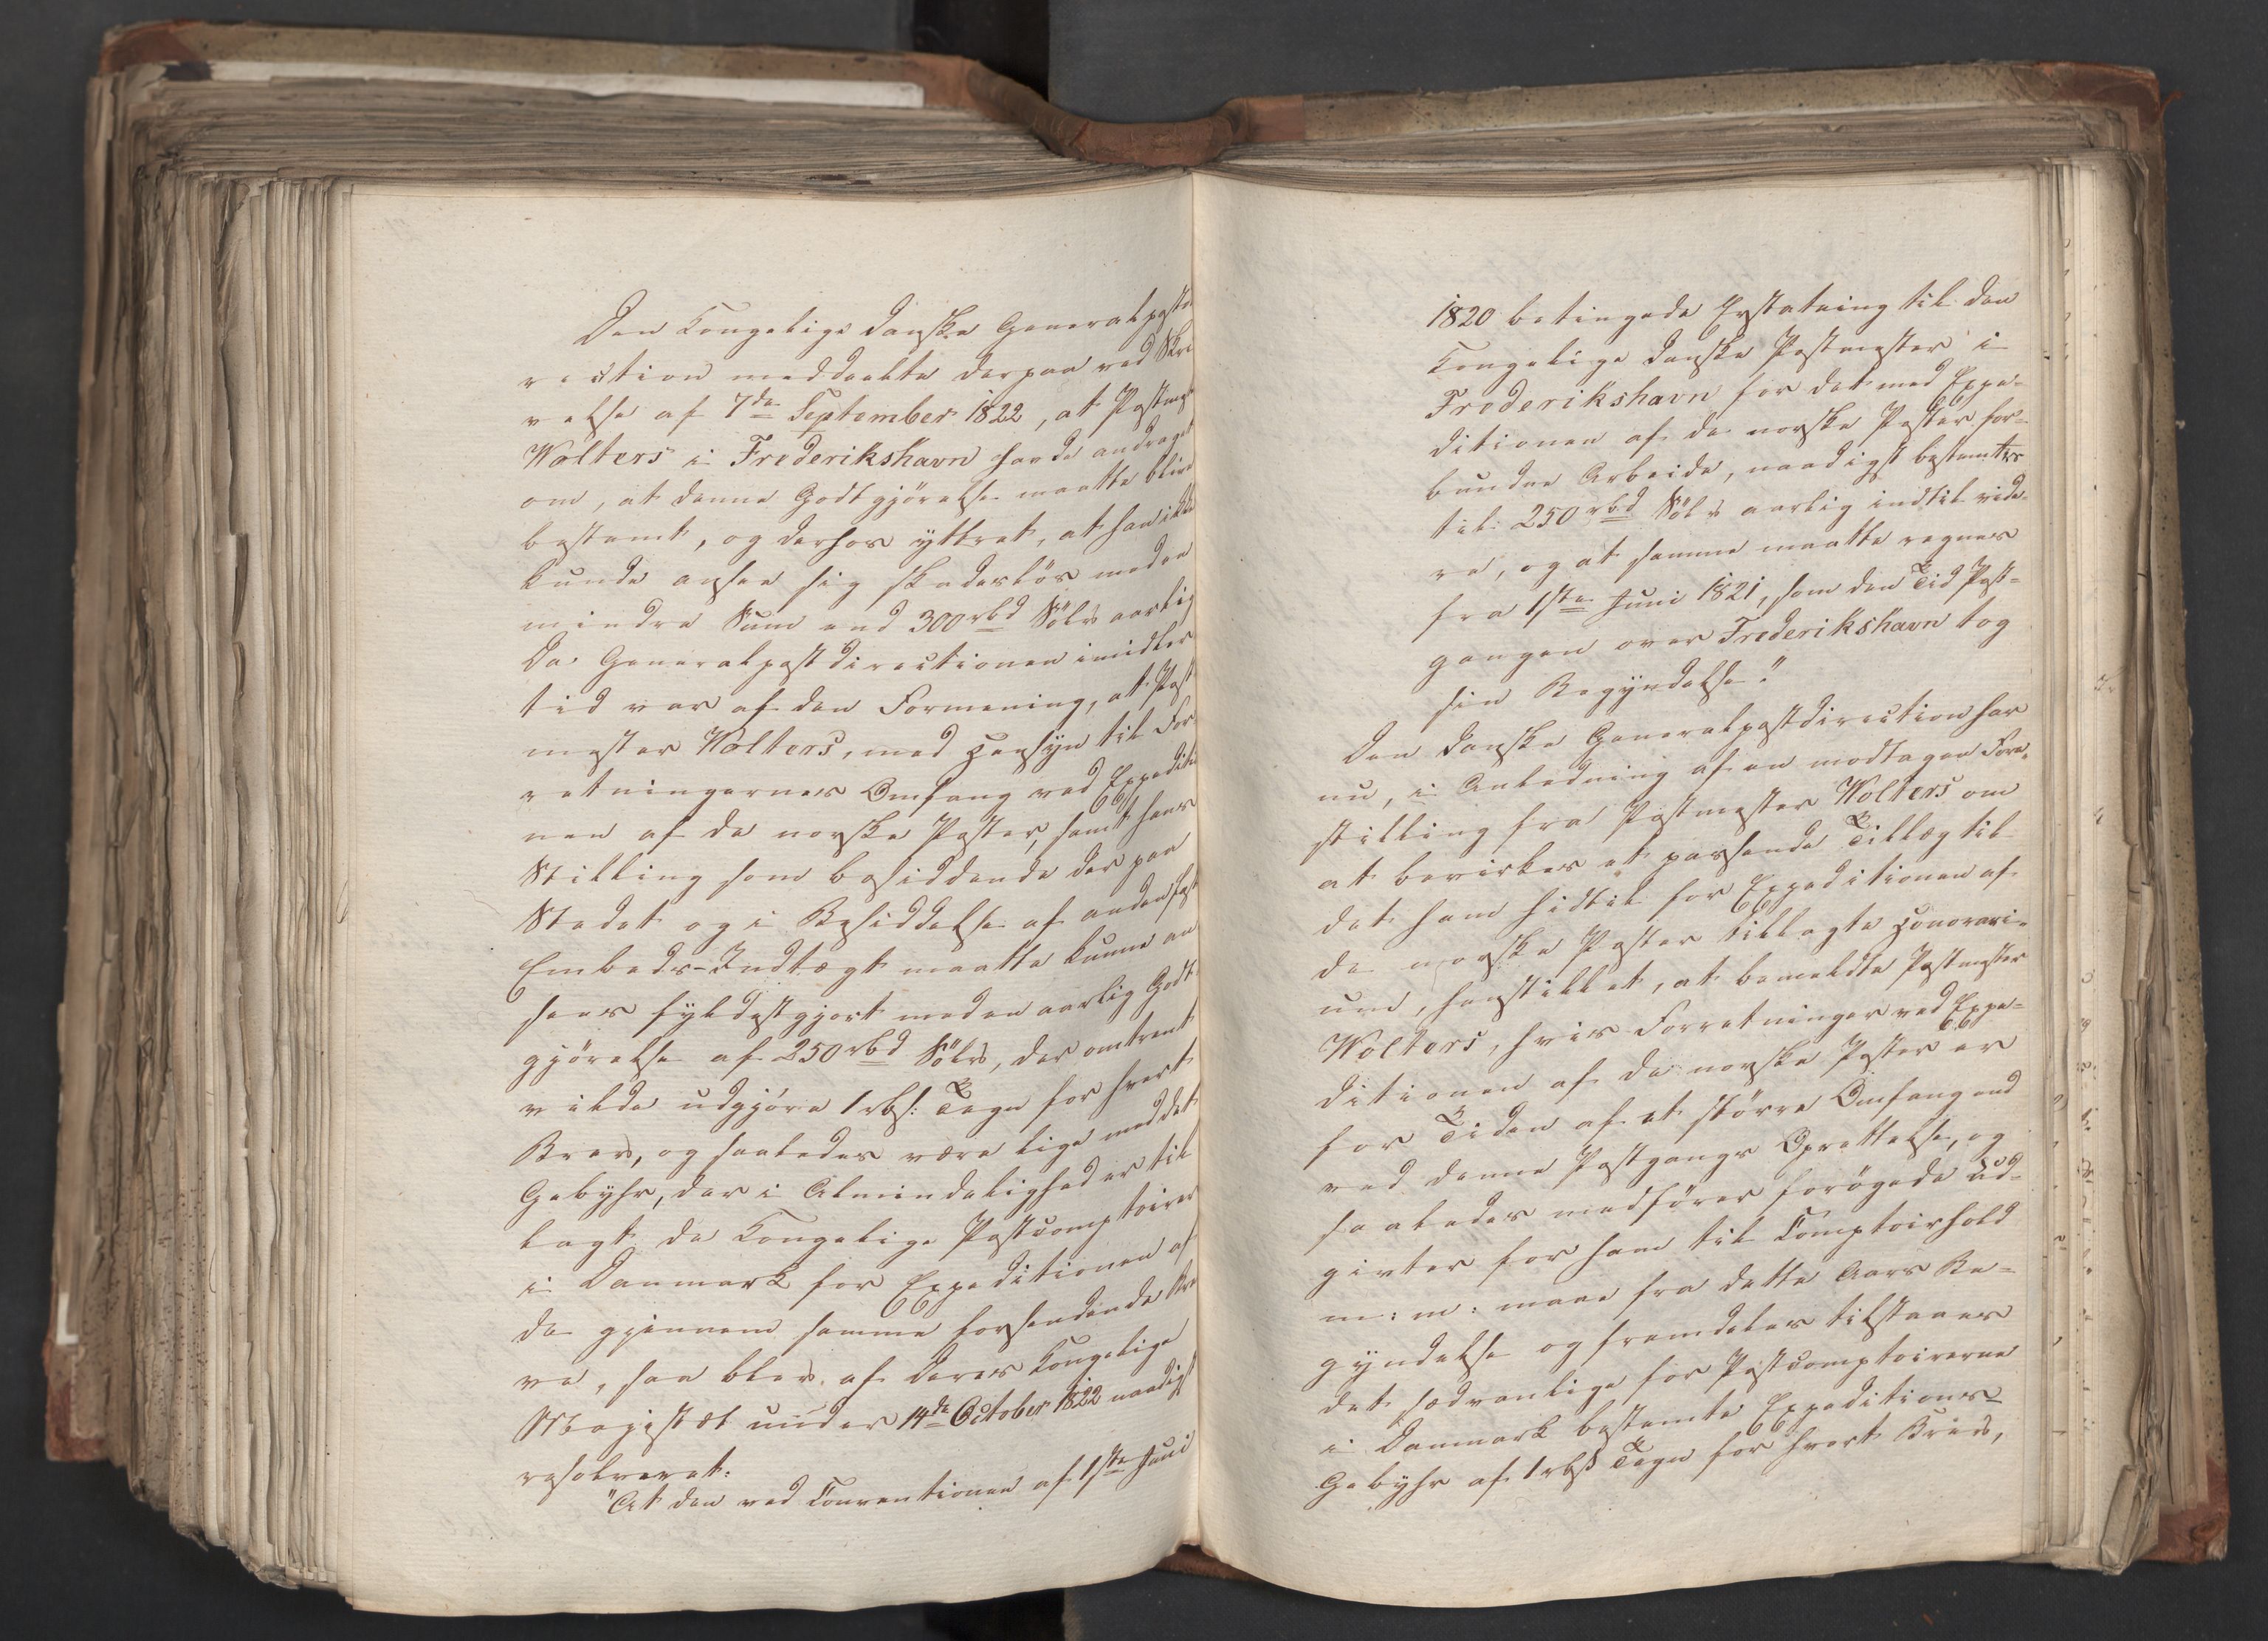 Den Kongelige danske Generalpostdi
rection meddeelte derpaa ved Skri
velse af 7de September 1822, at Postmester
Wolters i Frederikshavn havde andraget
om, at denne Godtgjörelse maatte blive
bestemt, og derhos yttret, at han ikke
kunde ansee sig skadeslös med en
mindre Sum end 300 rbd Sölv aarlig
Da Generalpostdirectionen imidler
tid var af den Formening, at Post
mester Wolters, med Hensyn til For
retningernes Omfang ved Expeditio
nen af de norske Poster, samt hans
Stilling som besiddende der paa
Stedet og i Besiddelse af anden fast
Embeds-Indtægt maatte kunne an
sees fyldestgjort med en aarlig Godt
gjörelse af 250 rbd Sölv, der omtrent
vilde udgjöre 1 rbs: Tegn for hvert
Brev, og saaledes være lige med det
Gebyhr, der i Almindelighed er til
lagt de Kongelige Postcomptoirer
i Danmark for Expeditionen af
de gjennem samme forsendende Bre
ve, saa blev af Deres Kongelige
Majestæt under 14de October 1822 naadigst
resolveret:
"At den ved Conventionen af 1ste Juni
1820 betingede Erstatning til den
Kongelige danske Postmester i
Frederikshavn for det med Expe-
ditionen af de norske Poster for-
bundne Arbeide, naadigst bestemtes
til 250 rbd Sölv aarlig indtil vide-
re, og at samme maatte regnes
fra 1ste Juni 1821, som den Tid Post-
gangen over Frederikshavn tog
sin Begyndelse."
Den danske Generalpostdirection har
nu, i Anledning af en modtagen Fore-
stilling fra Postmester Wolters om
at bevirkes et passende Tillæg til
det ham hidtil for Expeditionen af
de norske Poster tillagte Honorari-
um, henstillet, at bemeldte Postmester
Wolters, hvis Forretninger ved Expe-
ditionen af de norske Poster er
for Tiden af et större Omfang end
ved denne Postgangs Oprettelse, og
saaledes medförer forögede Ud-
givter for ham til Comptoirhold
m: m: maae fra dette Aars Be-
gyndelse og fremdeles tilstaaes
det sædvanlige for Postcomptoirerne
i Danmark bestemte Expeditions-
Gebyhr af 1 rbs Tegn for hvert Brev,